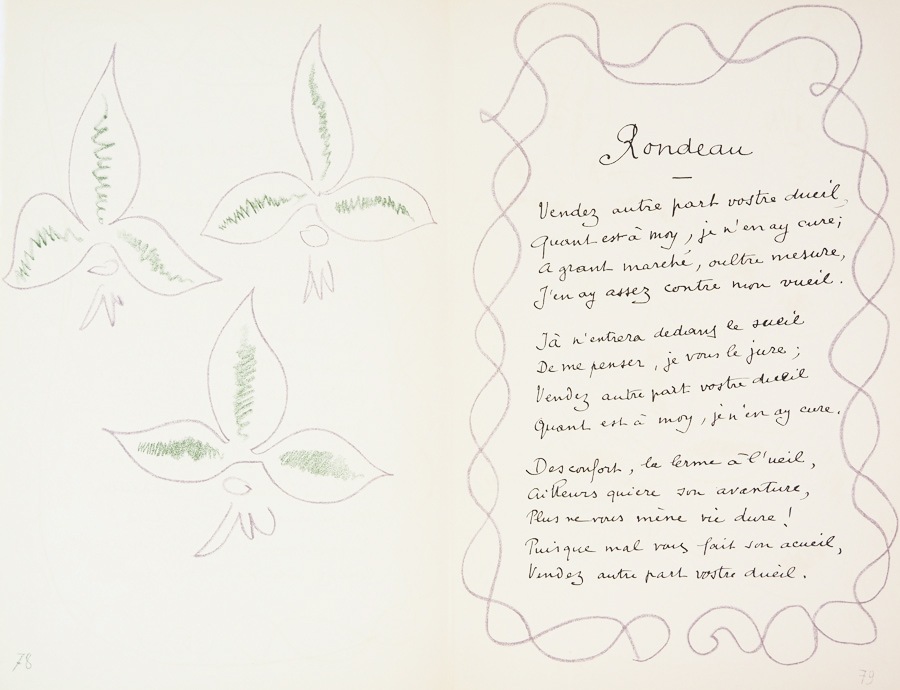 78
Rondeau
Vendez autre part vostre dueil,
Quant est à moy, je n'en ay cure;
A grant marché, oultre mesure,
J'en ay assez contre mon vueil.
Jà n'entrera dedans le sueil
De me penser, je vous le jure;
Vendez autre part vostre dueil
Quant est à moy, je n'en ay cure.
Desconfort, la lerme à l'ueil,
Ailleurs quière son avanture,
Plus ne vous mène vie dure!
Puisque mal vous fait son acueil,
Vendez autre part vostre dueil.
79